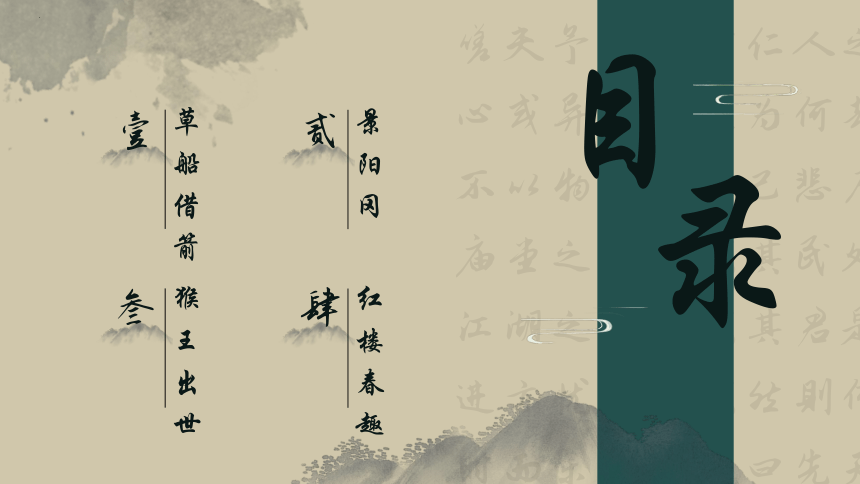 目录
壹
草船借箭
贰
景阳冈
叁
猴王出世
肆
红楼春趣
嗟夫予
心或异
不以物
庙堂之
江湖之
仁人
为何
己悲
其民
其君
然則
曰先